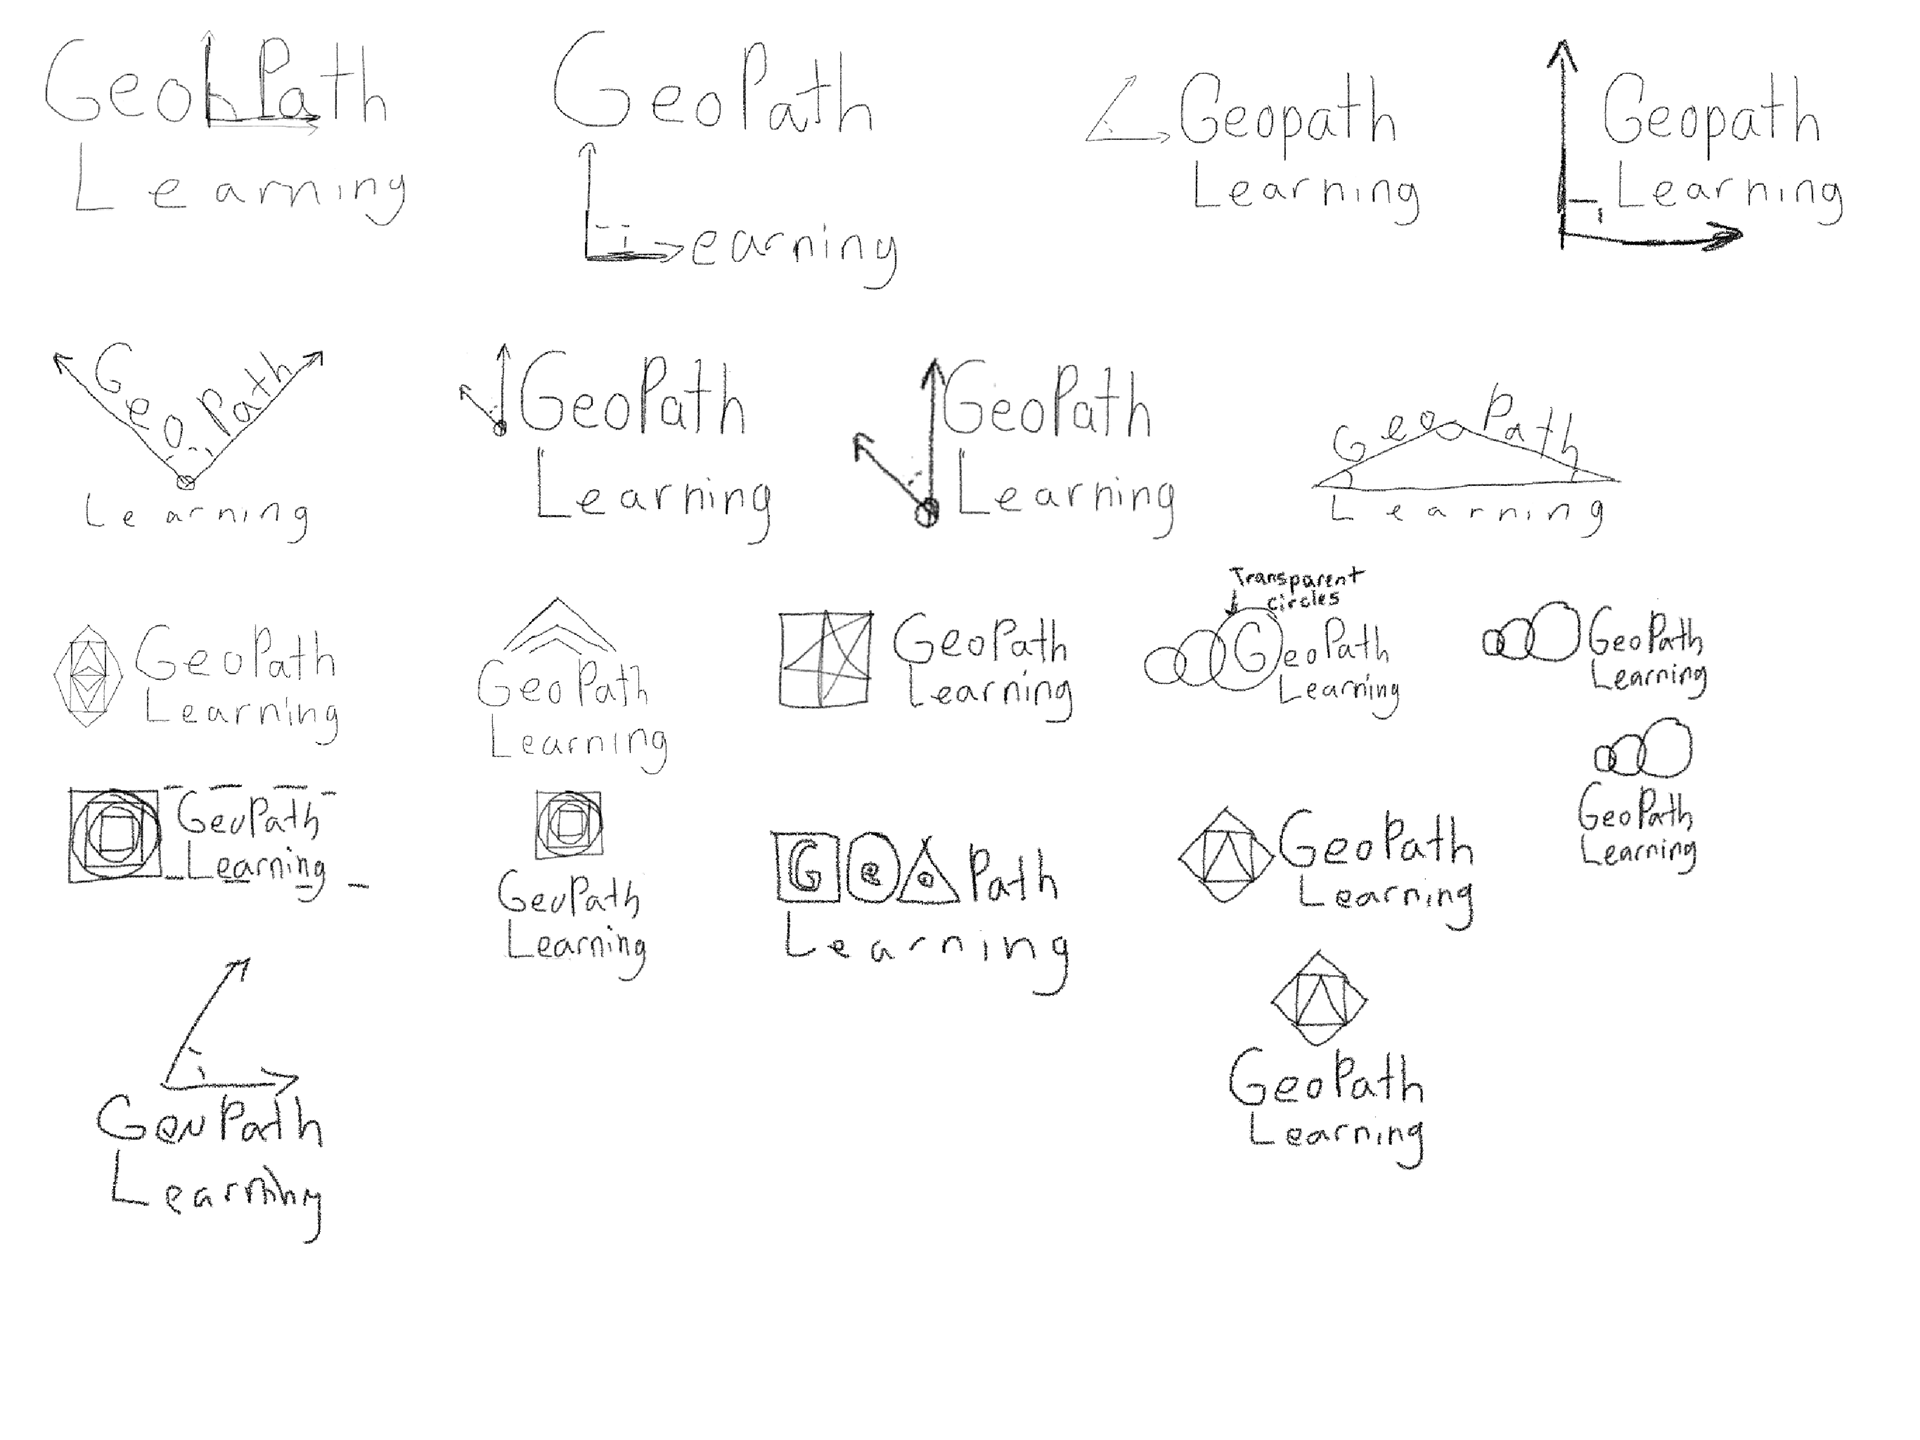 GeoPath
Learning
GeoPath
Learning
Geopath
Learning
Geopath
Learning
Geo Path
Learning
GeoPath
Learning
GeoPath
Learning
Geo Path
Learning
GeoPath
Learning
GeoPath
Learning
GeoPath
Learning
Transparent
circles
GeoPath
Learning
GeoPath
Learning
GeoPath
Learning
GeoPath
Learning
GeoPath
Learning
Geo Path
Learning
GeoPath
Learning
GeoPath
Learning
GeoPath
Learning